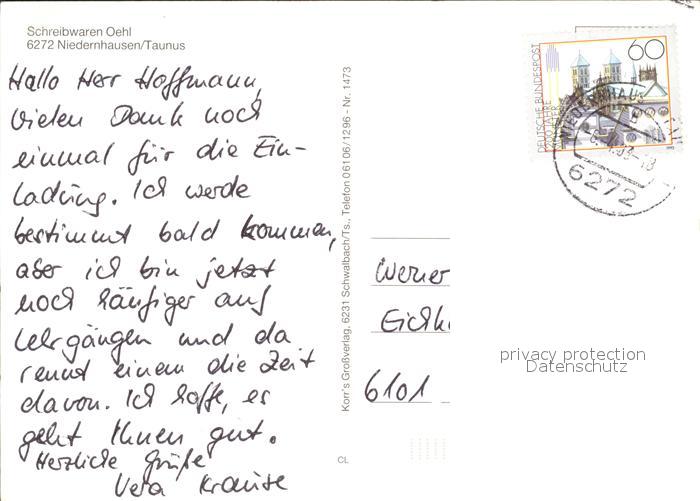 Schreibwaren Oehl
6272 Niedernhausen/Taunus
Hallo Herr Hoffmann,
vielen Dank noch
einmal für die Ein-
ladung. Ich werde
bestimmt bald kommen,
aber ich bin jetzt
noch häufiger auf
Lehrgängen und da
rennt einem die Zeit
davon. Ich hoffe, es
geht Ihnen gut.
Herzliche Grüße
Vera Krause
Korr's Großverlag, 6231 Schwalbach/Ts., Telefon 06106/1296 - Nr. 1473
CL
60
DEUTSCHE BUNDESPOST
1200 JAHRE
6272
Werner
Eichk
6101
privacy protection
Datenschutz